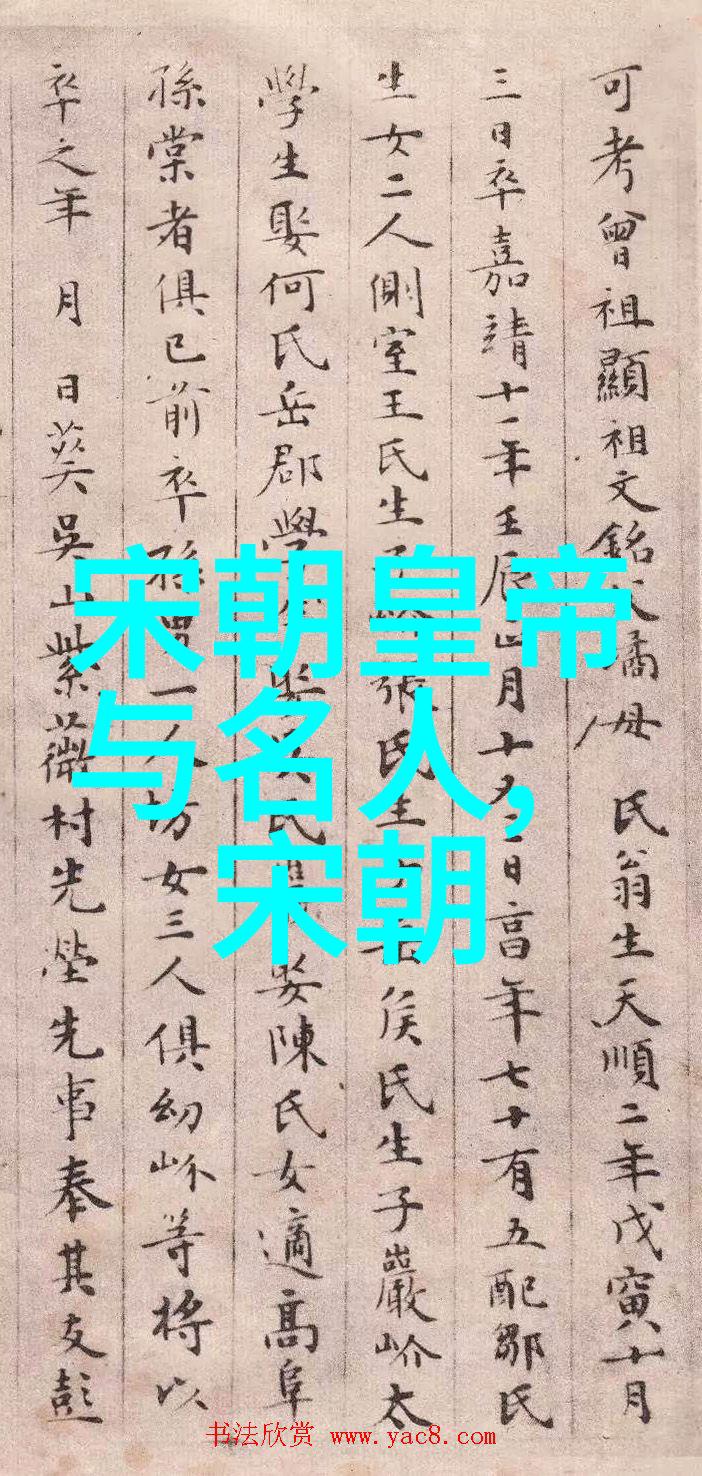 可考曾祖顯祖文銘父㵒母 氏翁生天順二年戊寅十月
三日卒嘉靖十一年壬辰正月十又二日富年七十有五配鄒氏
生女二人側室王氏生子 張氏生 侯氏生子巖岕太
學生娶何氏岳郡學生娶 氏 娶陳氏女適高阜
孫棠者俱已前卒孫男一人坊女三人俱幼岕等將以
卒之年 月 日葬吳山紫薇村先塋先事奉其友彭
宋朝皇帝
与名人,
宋朝
书法欣赏 www.yac8.com